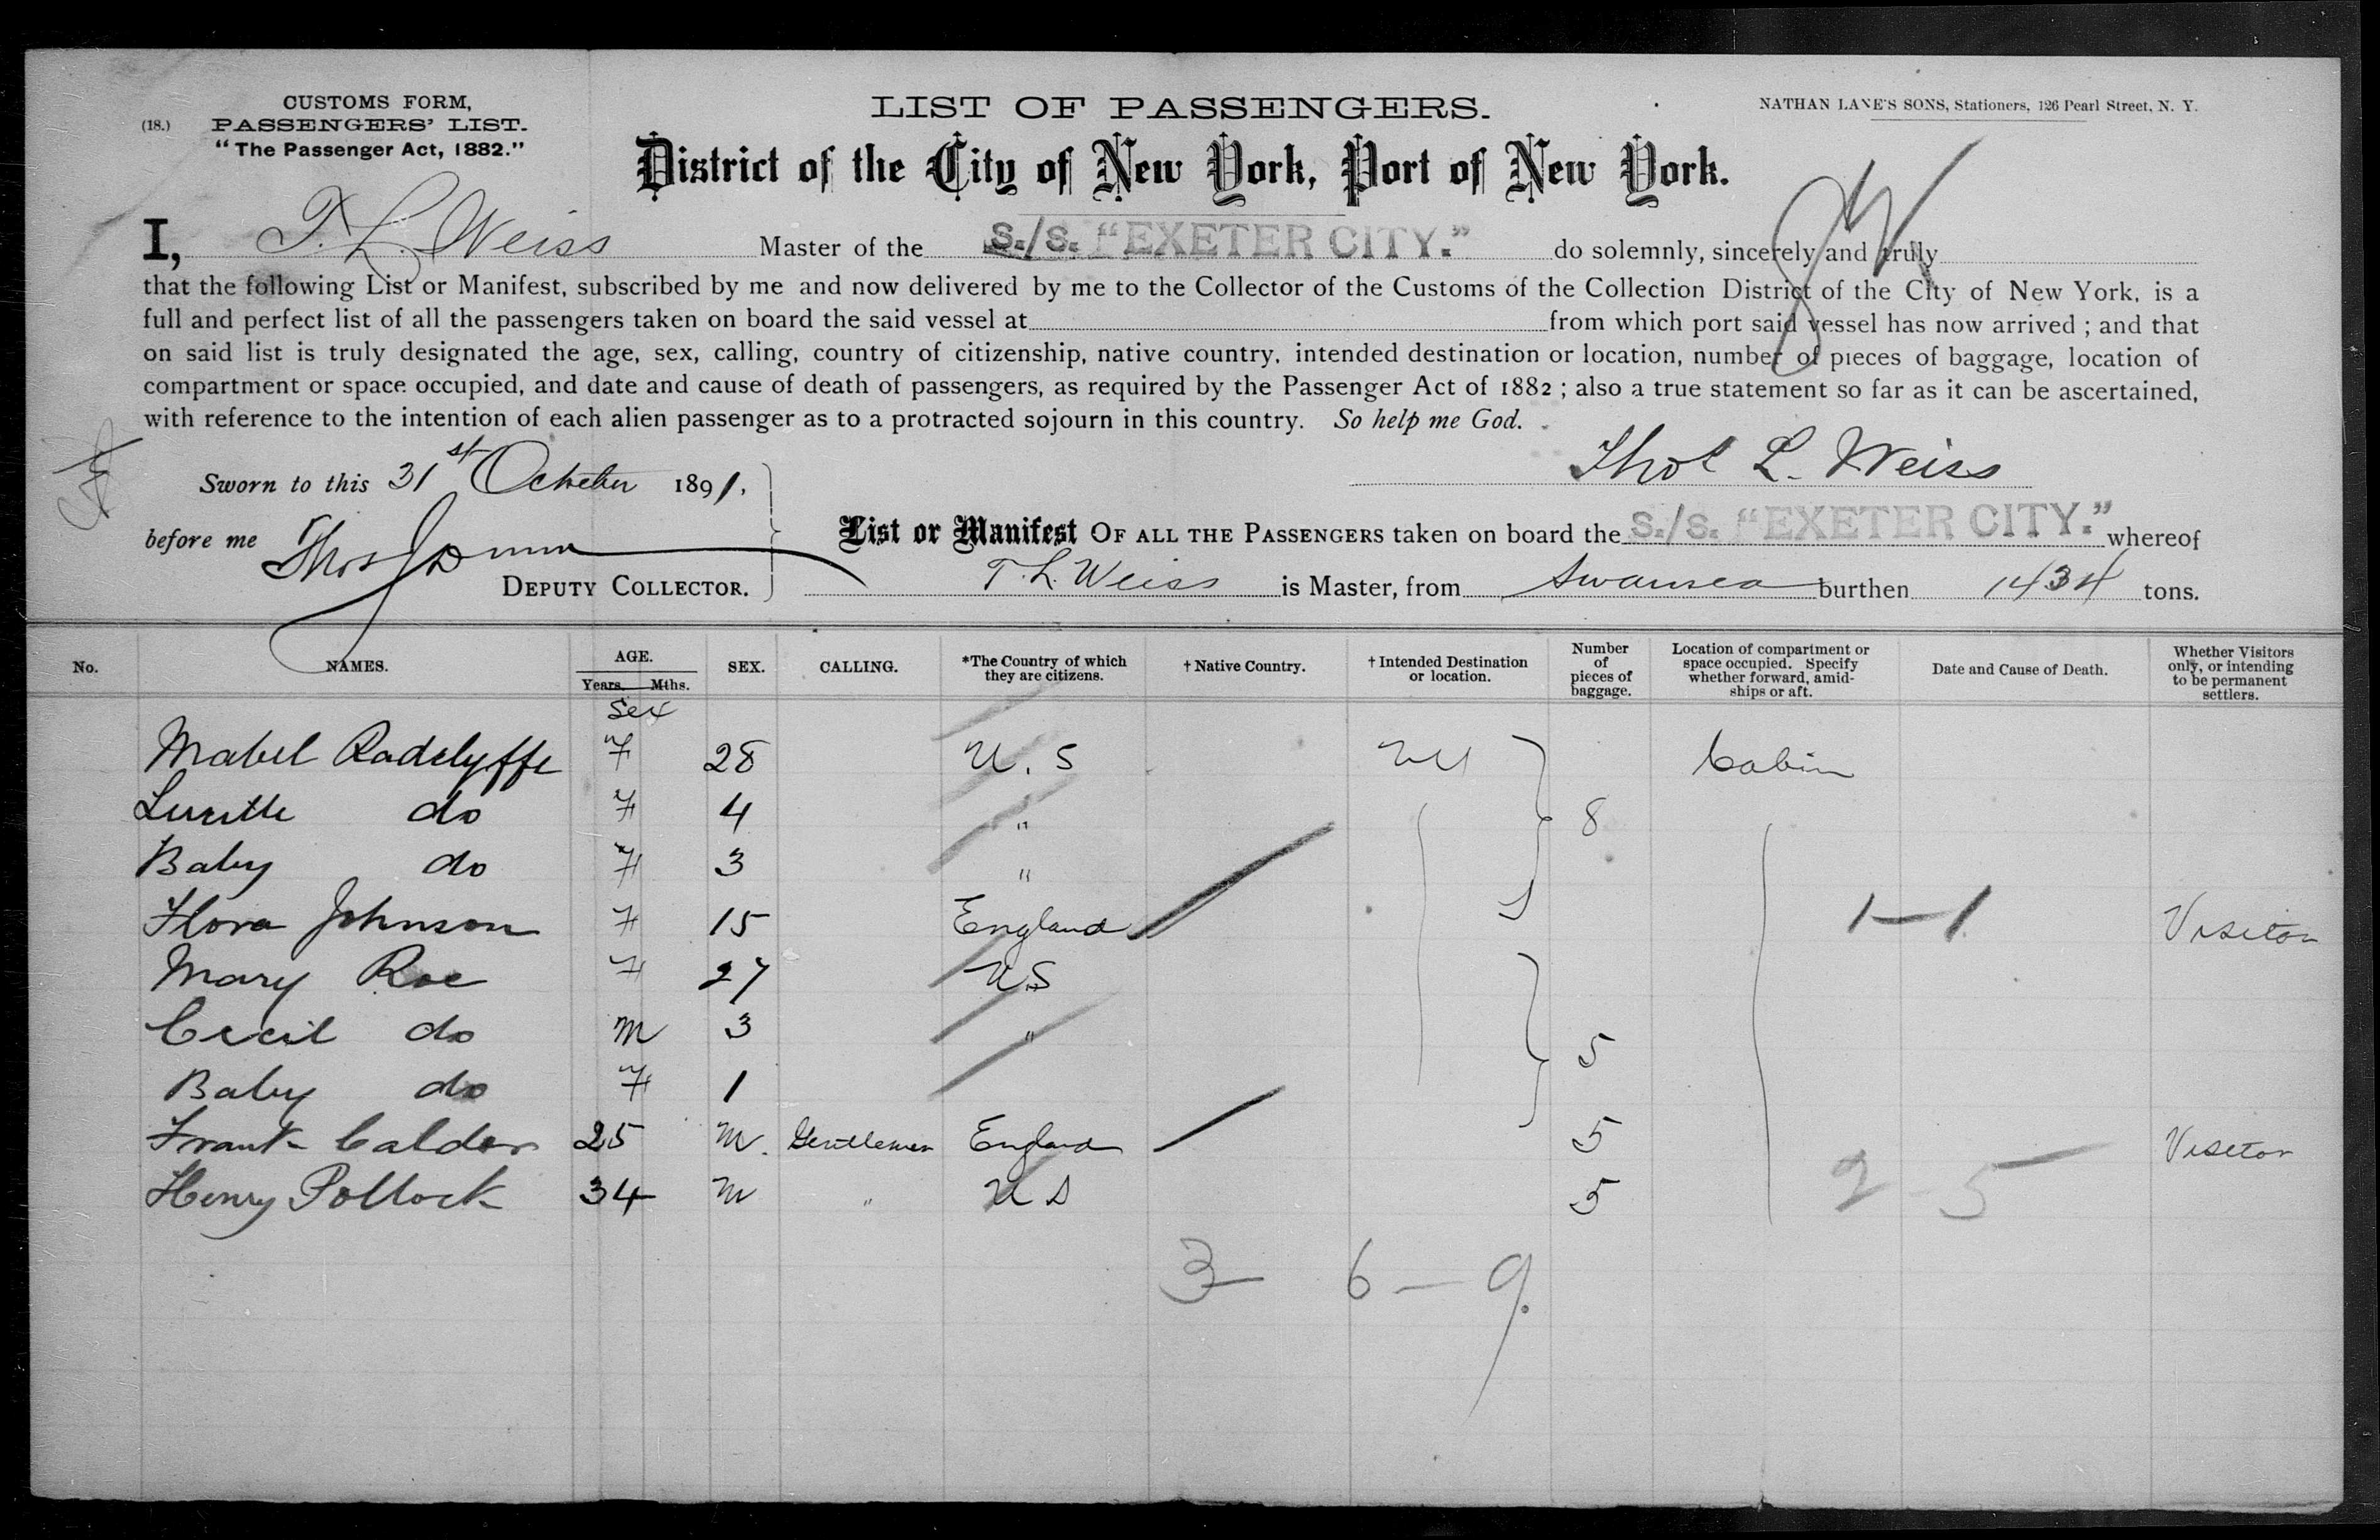 CUSTOMS FORM,
(18.) PASSENGERS' LIST.
"The Passenger Act, 1882."
LIST OF PASSENGERS.
NATHAN LANE'S SONS, Stationers, 126 Pearl Street, N. Y.
District of the City of New York, Port of New York.
I, T. L. Weiss Master of the S./S. "EXETER CITY." do solemnly, sincerely and truly
that the following List or Manifest, subscribed by me and now delivered by me to the Collector of the Customs of the Collection District of the City of New York, is a
full and perfect list of all the passengers taken on board the said vessel at from which port said vessel has now arrived ; and that
on said list is truly designated the age, sex, calling, country of citizenship, native country, intended destination or location, number of pieces of baggage, location of
compartment or space occupied, and date and cause of death of passengers, as required by the Passenger Act of 1882 ; also a true statement so far as it can be ascertained,
with reference to the intention of each alien passenger as to a protracted sojourn in this country. So help me God.
Thos L. Weiss
Sworn to this 31st October 1891,
before me Thos J Dunn
DEPUTY COLLECTOR.
List or Manifest OF ALL THE PASSENGERS taken on board the S./S. "EXETER CITY." whereof
T. L. Weiss is Master, from Swansea burthen 1434 tons.
No. NAMES. AGE. Years. Mths. SEX. CALLING. *The Country of which they are citizens. † Native Country. † Intended Destination or location. Number of pieces of baggage. Location of compartment or space occupied. Specify whether forward, amidships or aft. Date and Cause of Death. Whether Visitors only, or intending to be permanent settlers.
Sex
Mabel Radclyffe F 28 U. S NY Cabin
Lucille do F 4 " 8
Baby do F 3 "
Flora Johnson F 15 England 1-1 Visitor
Mary Roe F 27 U.S
Cecil do M 3 " 5
Baby do F 1
Frank Calder 25 M. Gentleman England 5 Visitor
Henry Pollock 34 M " U S 5 2-5
3 - 6 - 9.